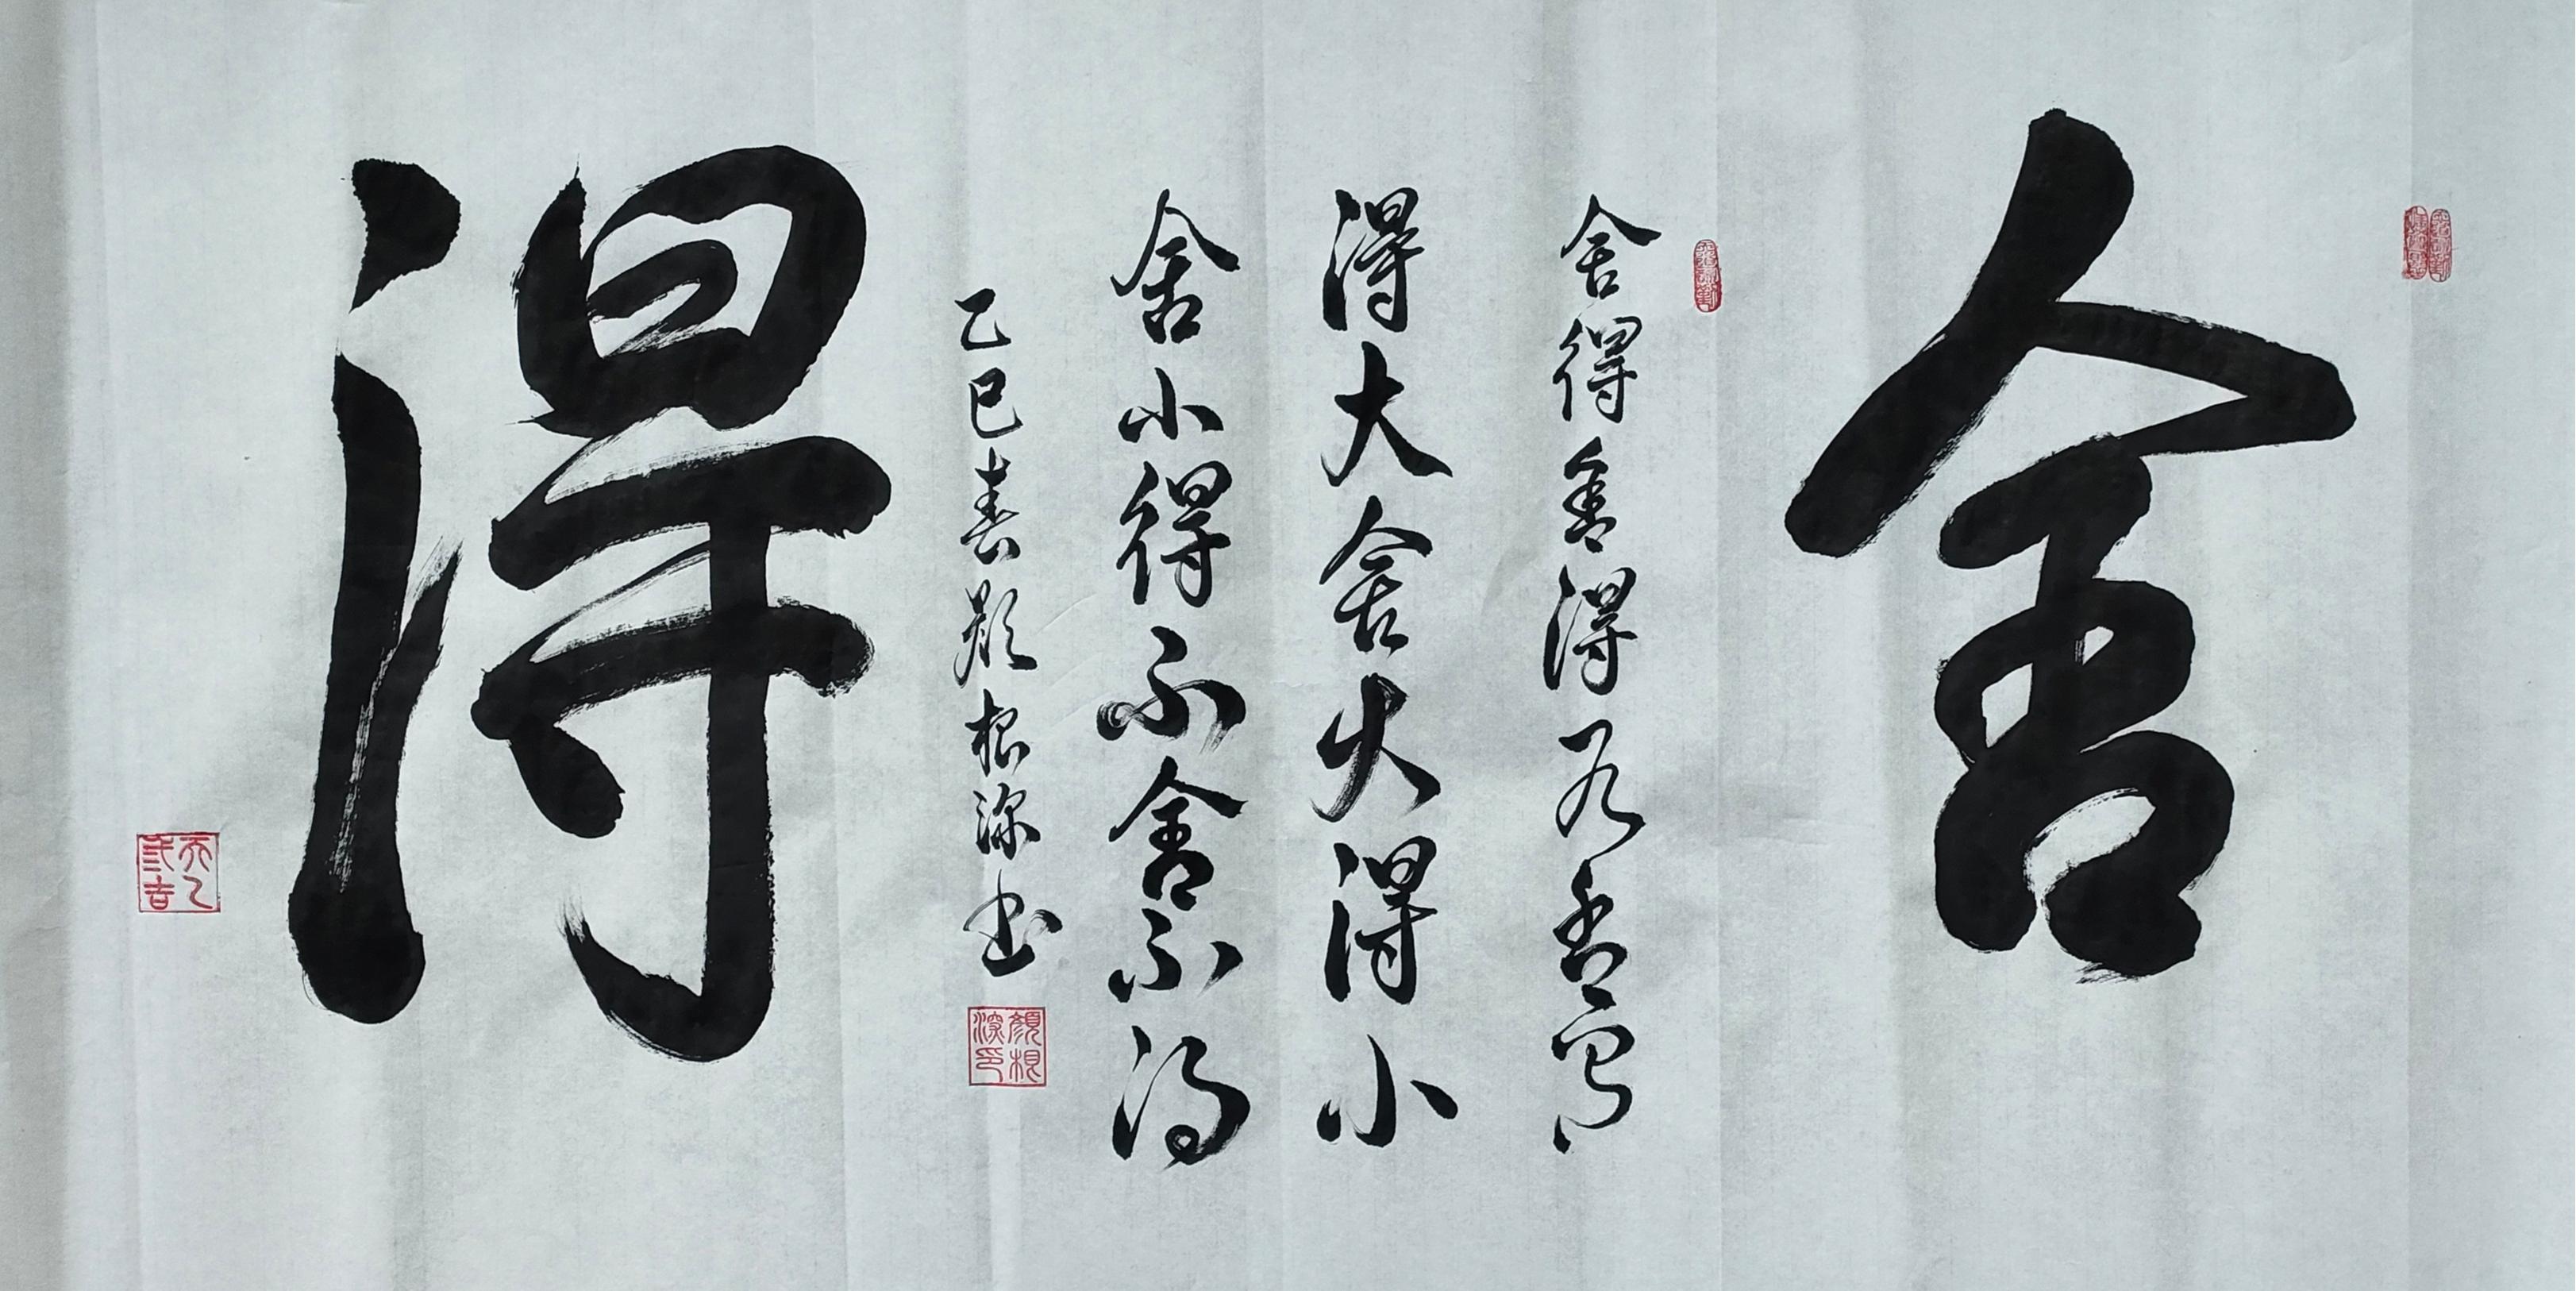 舍
舍得舍得舍
得大舍大得小
舍小得不舍不得
乙巳春颜根深书
顏根深印
得